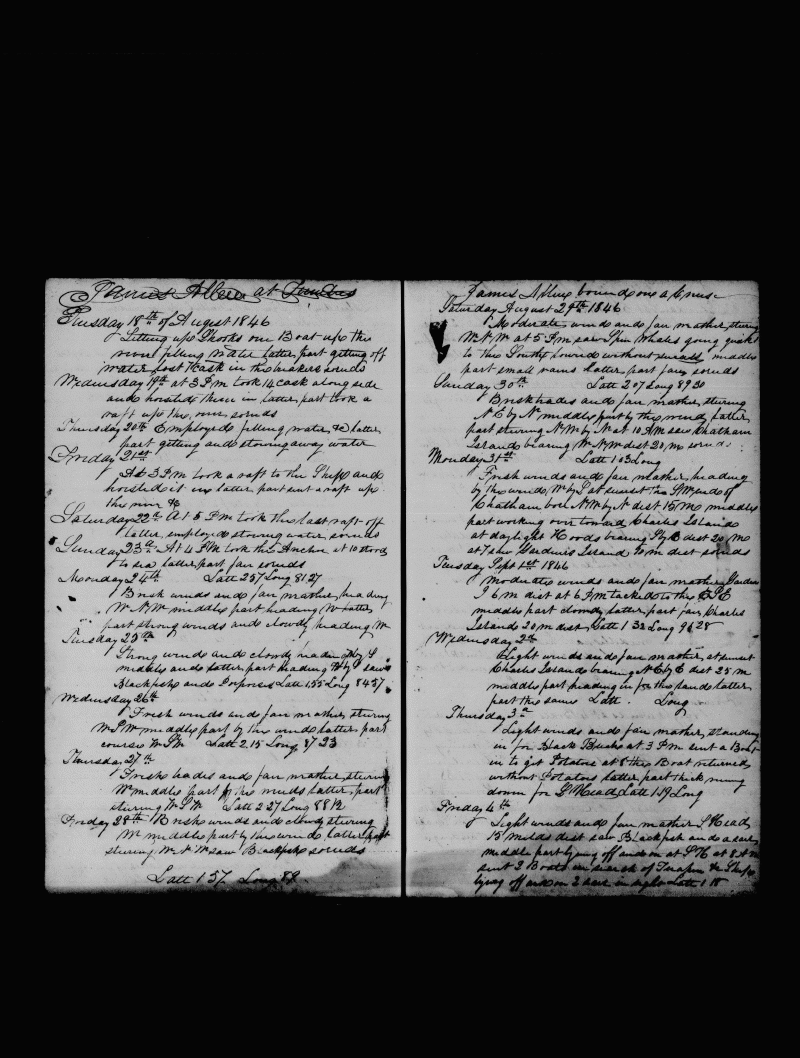 James Allen at Tumbus
Tuesday 18th of August 1846
Setting up Shooks one Boat up the
river filling water latter part getting off
water lost 1 Cask in the brakers sounds
Wednesday 19th at 3 PM took 14 cask along side
and hoisted them in latter part took a
raft up the river sounds
Thursday 20th Employed filling water &c latter
part getting and stowing away water
Friday 21st
At 3 PM took a raft to the Ship and
hoisted it in latter part sent a raft up
the river &c
Saturday 22th At 5 PM took the last raft off
latter employed stowing water sounds
Sunday 23d At 4 PM took the Anchor at 10 stood
to sea latter part fair sounds
Monday 24th Latt 2 57 Long 81 27
Brisk winds and fair weather heading
W N W middle part heading W latter
part strong winds and cloudy heading W
Tuesday 25th
Strong winds and cloudy heading W by S
middle and latter part heading W by S saw
Blackfish and Porpoises Latt 1 55 Long 84 57
Wednesday 26th
Fresh winds and fair weather stering
W S W middle part by the wind latter part
course W S W Latt 2 15 Long 87 23
Thursday 27th
Fresh trades and fair weather stering
W middle part by the wind latter part
stering W S W Latt 2 27 Long 88 12
Friday 28th Brisk winds and cloudy stering
W middle part by the wind latter part
stering W N W saw Blackfish sounds
Latt 1 57 Long 89
James Allen bound on a Cruise
Saturday August 29th 1846
Moderate winds and fair weather stering
W N W at 5 PM saw Spm Whales going quick
to the South lowered without success middle
part small rains latter part fair sounds
Sunday 30th Latt 2 07 Long 89 30
Brisk trades and fair weather stering
N E by N middle part by the wind latter
part stering N W by N at 10 AM saw Chatham
Island bearing W N W dist 20 m sounds
Monday 31st Latt 1 03 Long
Fresh winds and fair weather heading
by the wind W by S at sunset the S W end of
Chatham bore N W by N dist 15 M middle
part working over toward Charles Island
at daylight Hoods bearing S by E dist 20 M
at 7 saw Gardners Island 20 m dist sounds
Tuesday Sept 1st 1846
Moderate winds and fair weather Gardners
I 6 m dist at 6 PM tacked to the E S E
middle part cloudy latter part fair Charles
Island 20 m dist Latt 1 32 Long 90 28
Wednesday 2d
Light winds and fair weather at sunset
Charles Island bearing N E by E dist 25 m
middle part heading in for the land latter
part the same Latt Long
Thursday 3d
Light winds and fair weather standing
in for Black Beach at 3 PM sent a Boat
in to get Potatos at 8 the Boat returned
without Potatos latter part thick runing
down for S Head Latt 1 19 Long
Friday 4th
Light winds and fair weather S Head
15 miles dist saw Blackfish and a sail
middle part lying off and on at S H at 8 AM
sent 3 Boats in search of Terapin &c Ship
lying off and on 2 sail in sight Latt 1 18